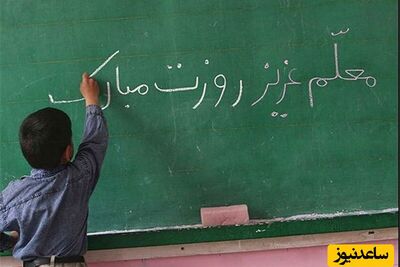 معلّم عزیز روزت مبارک
ساعدنیوز